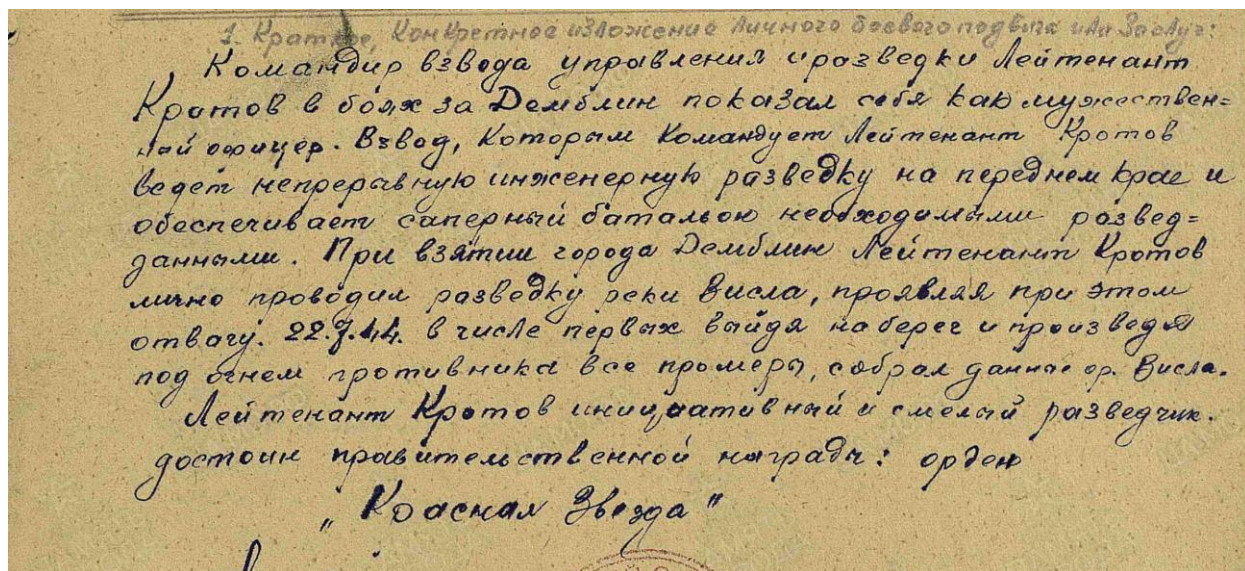 1. Краткое, Конкретное изложение личного боевого подвига или Заслуг:
Командир взвода управления и разведки Лейтенант
Кротов в боях за Демблин показал себя как мужествен=
ный офицер. Взвод, Которым Командует Лейтенант Кротов
ведет непрерывную инженерную разведку на переднем крае и
обеспечивает саперный батальон необходимыми развед=
данными. При взятии города Демблин Лейтенант Кротов
лично проводил разведку реки Висла, проявляя при этом
отвагу. 22.7.44. в числе первых выйдя на берег и произведя
под огнем противника все промеры, собрал данные о р. Висла.
Лейтенант Кротов инициативный и смелый разведчик.
достоин правительственной награды: орден
„Красная Звезда"